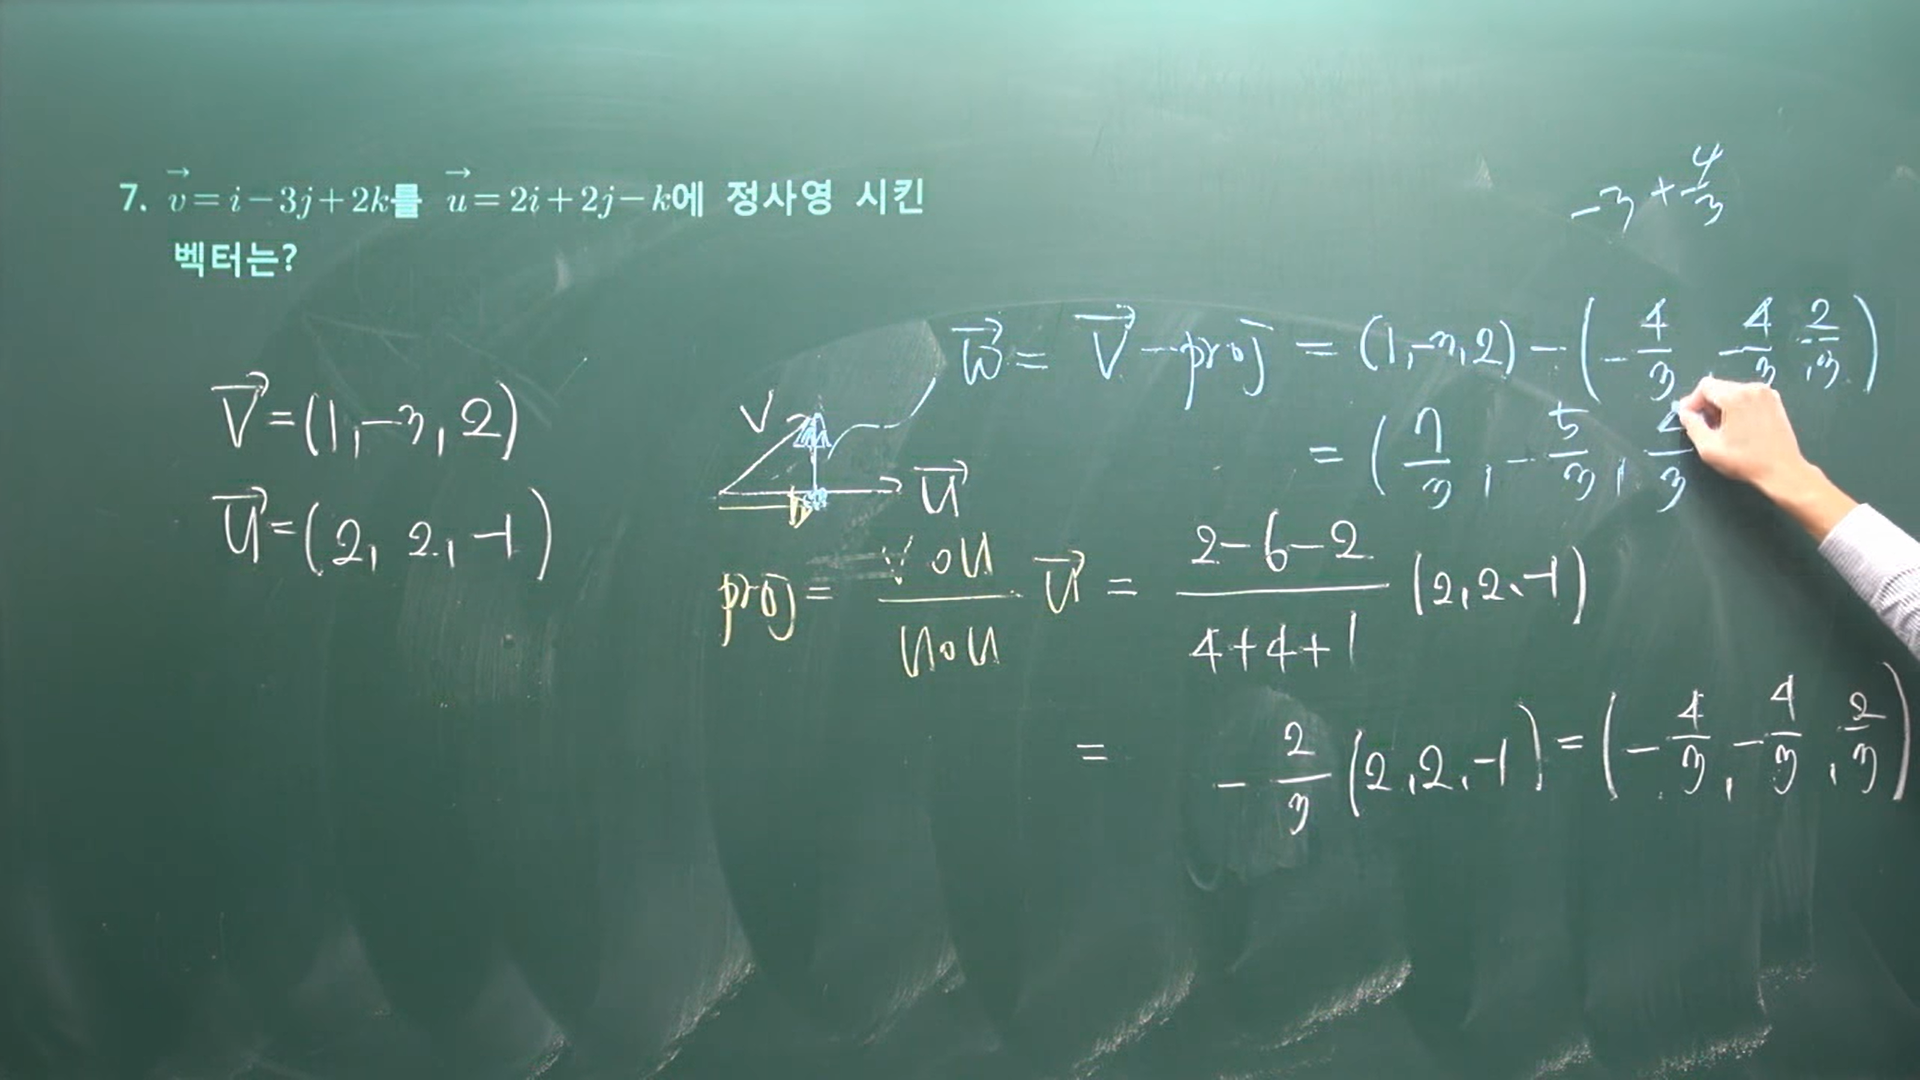 7. v⃗ = i − 3j + 2k를 u⃗ = 2i + 2j − k에 정사영 시킨
벡터는?
v⃗ = (1, −3, 2)
u⃗ = (2, 2, −1)
V
u⃗
−3 + 4/3
w⃗ = v⃗ − proj = (1, −3, 2) − (−4/3, −4/3, 2/3)
= (7/3, −5/3, 4/3
proj = v∘u / u∘u u⃗ = 2−6−2 / 4+4+1 (2, 2, −1)
= −2/3 (2, 2, −1) = (−4/3, −4/3, 2/3)